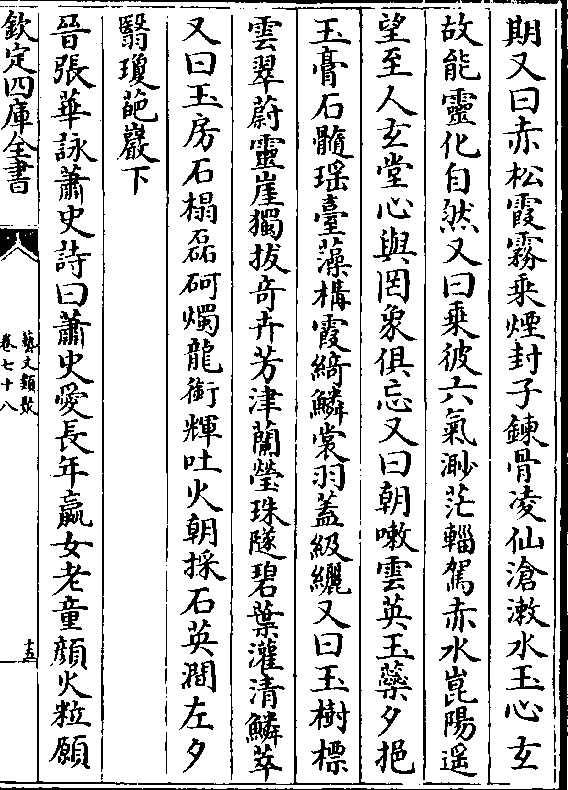 期又曰赤松霞霧乘煙封子鍊骨凌仙滄漱水玉心玄
故能靈化自然又曰乘彼六氣渺茫輜駕赤水崑陽遥
望至人玄堂心與罔象俱忘又曰朝嗽雲英玉蘂夕挹
玉膏石髓瑶臺藻構霞綺鱗裳羽蓋級纚又曰玉樹標
雲翠蔚靈崖獨拔奇卉芳津蘭瑩珠隧碧葉灌清鱗萃
又曰玉房石榻磊砢燭龍銜輝吐火朝採石英澗左夕
翳瓊葩巖下
晉張華詠蕭史詩曰蕭史愛長年嬴女老童顔火粒願
欽定四庫全書
藝文類聚
卷七十八
十五